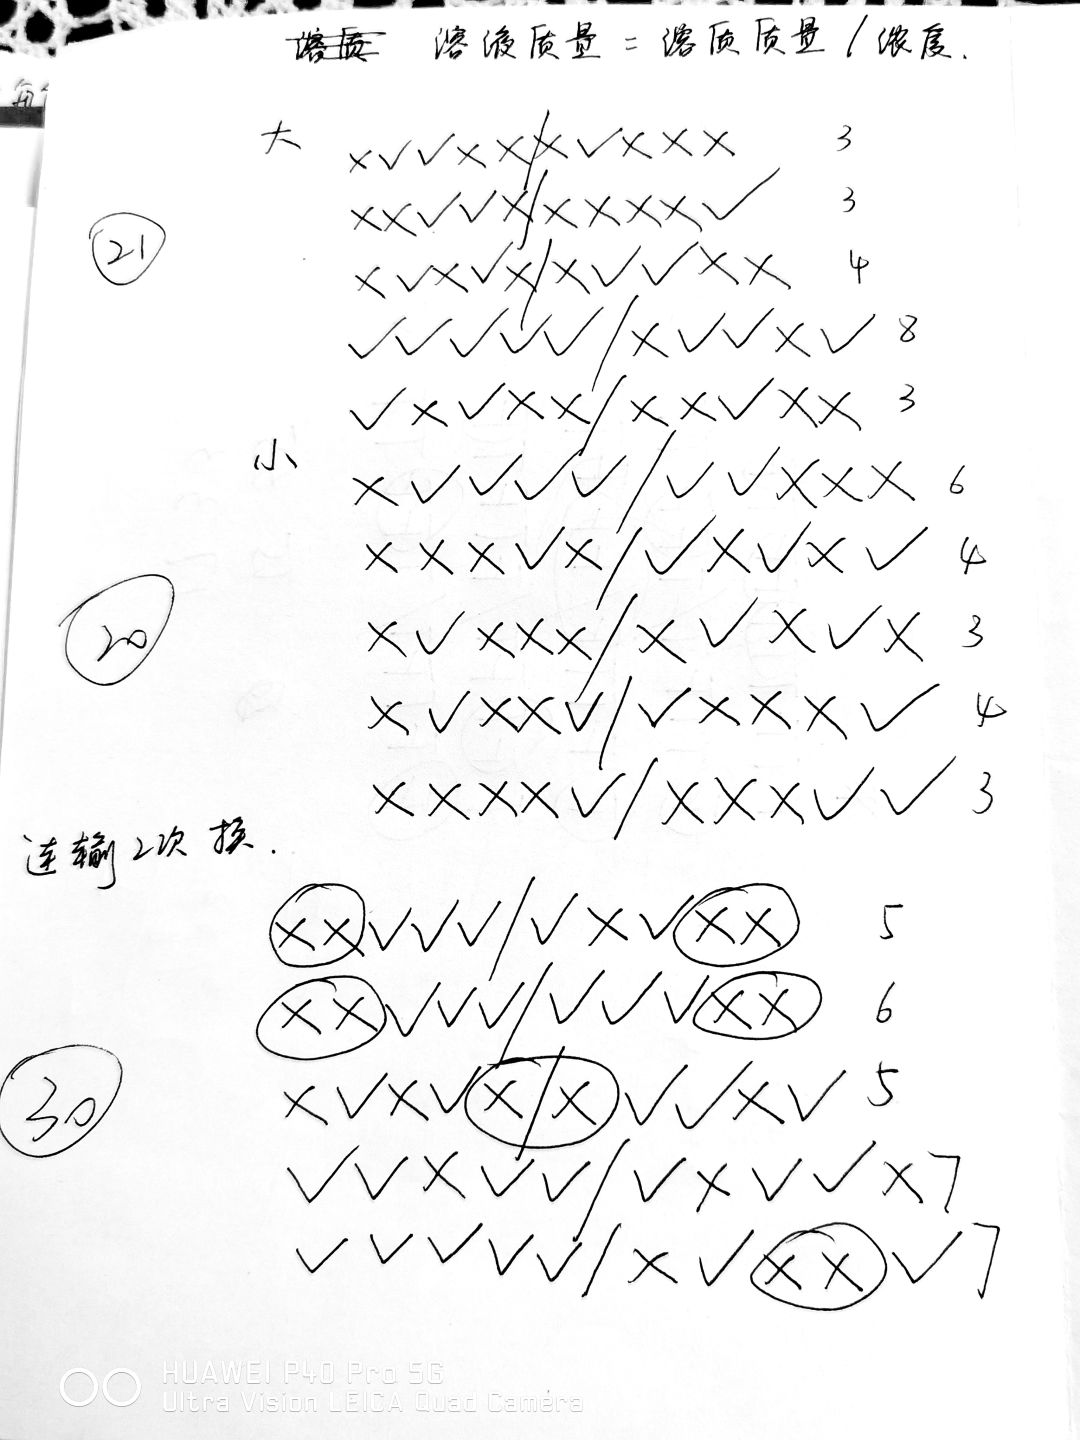 溶质 溶液质量 = 溶质质量 / 浓度.
大 ×✓✓××/×✓××× 3
××✓✓×/××××✓ 3
21
×✓×✓×/×✓✓×× 4
✓✓✓✓✓/×✓✓×✓ 8
✓×✓××/××✓×× 3
小 ×✓✓✓✓/✓✓××× 6
×××✓×/✓×✓×✓ 4
20
×✓×××/×✓×✓× 3
×✓××✓/✓×××✓ 4
××××✓/×××✓✓ 3
连输2次换.
××✓✓✓/✓×✓×× 5
××✓✓✓/✓✓✓×× 6
30
×✓×✓×/×✓✓×✓ 5
✓✓×✓✓/✓×✓✓× 7
✓✓✓✓✓/×✓××✓ 7
HUAWEI P40 Pro 5G
Ultra Vision LEICA Quad Camera